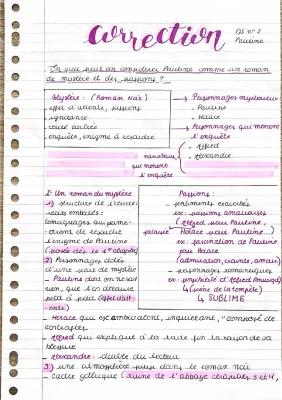 correction
DS n°2
Pauline
En quoi peut-on considérer Pauline comme un roman
de mystère et des passions ?
Mystère : (Roman Noir)
- effet d'attente, suspens
- ignorance
- vérité cachée
- enquête, énigme à résoudre
→ Personnages mystérieux
- Pauline
- Horace
→ Personnages qui mènent
l'enquête
- Alfred
- Alexandre
narrateurs
qui mènent
l'enquête
I- Un roman du mystère
1) structure de récits :
récits emboîtés :
témoignages qui perme-
ttent de résoudre
l'énigme de Pauline
(posée dès le 1er chapitre)
2) Personnages dotés
d'une part de mystère
- Pauline dont on ne sait
rien, que l'on découvre
petit à petit (effet d'att-
ente)
Passions :
- sentiments exacerbés
ex: passions amoureuses
(Alfred pour Pauline,
jalousie Horace pour Pauline...)
ex: fascination de Pauline
pour Horace
(admiration, crainte, amour)
- personnages romantiques
ex: d'Alfred
↳ (scène de la tempête)
↳ SUBLIME
- Horace qui est ambivalent, inquiétant, "composé de
contrastes
- Alfred qui explique à la fin la raison de sa
blessure
- Alexandre : du lecteur
3) une atmosphère propre dans le roman noir
- cadre gothique (ruine de l'abbaye chapitres 3 et 4,